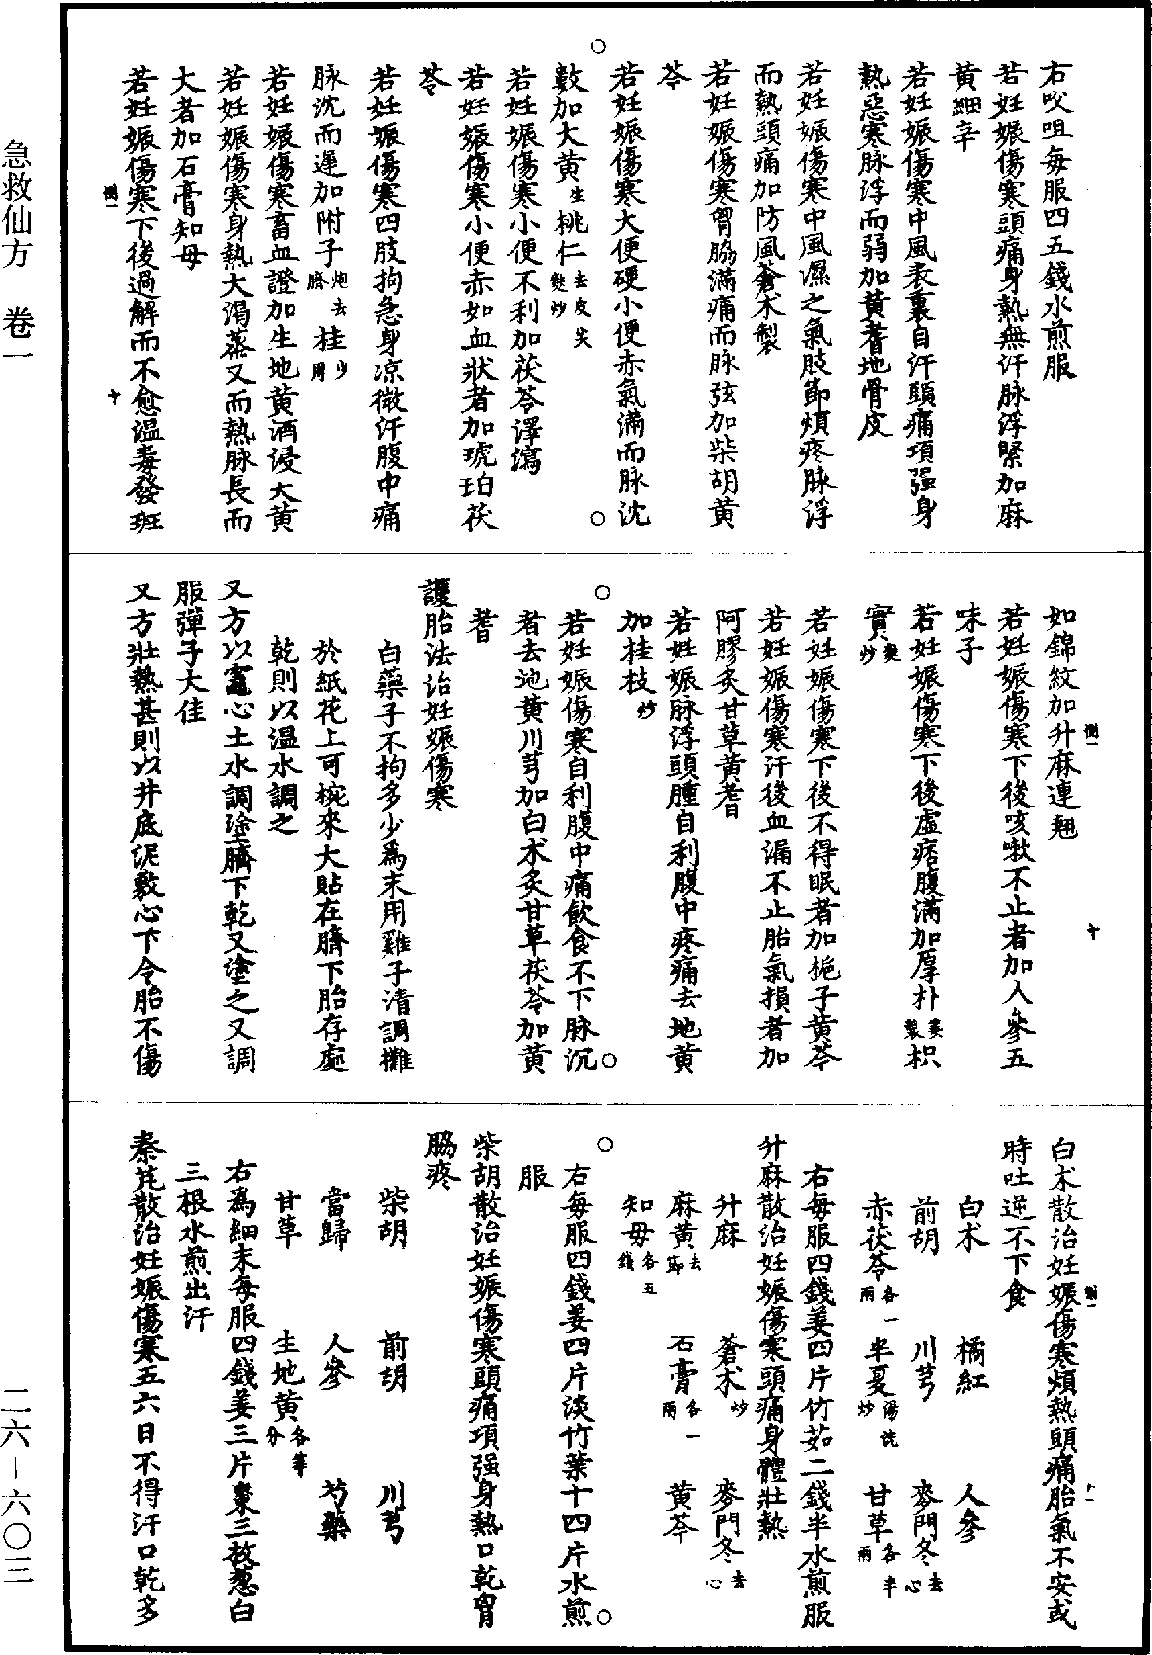 右㕮咀每服四五錢水煎服
若妊娠傷寒頭痛身熱無汗脉浮緊加麻
黄細辛
若妊娠傷寒中風表裏自汗頭痛項强身
熱惡寒脉浮而弱加黄耆地骨皮
若妊娠傷寒中風濕之氣肢節煩疼脉浮
而熱頭痛加防風蒼术製
若妊娠傷寒胷脇滿痛而脉弦加柴胡黄
芩
若妊娠傷寒大便硬小便赤氣滿而脉沈
數加大黄生桃仁去皮尖麩炒
若妊娠傷寒小便不利加茯苓澤瀉
若妊娠傷寒小便赤如血狀者加琥珀茯
苓
若妊娠傷寒四肢拘急身凉微汗腹中痛
脉沈而遲加附子炮去臍桂少用
若妊娠傷寒畜血證加生地黄酒浸大黄
若妊娠傷寒身熱大渴蒸又而熱脉長而
大者加石膏知母
若妊娠傷寒下後過觧而不愈温毒發斑
如錦紋加升麻連翹
若妊娠傷寒下後咳嗽不止者加人參五
味子
若妊娠傷寒下後虚痞腹滿加厚朴薑製枳
實麩炒
若妊娠傷寒下後不得眠者加梔子黄芩
若妊娠傷寒汗後血漏不止胎氣損者加
阿膠炙甘草黄耆
若妊娠脉浮頭腫自利腹中疼痛去地黄
加桂枝炒
若妊娠傷寒自利腹中痛飲食不下脉沉
者去地黄川芎加白术炙甘草茯苓加黄
耆
護胎法治妊娠傷寒
白藥子不拘多少爲末用雞子清調攤
於紙花上可椀來大貼在臍下胎存處
乾則以温水調之
又方以竈心土水調塗臍下乾又塗之又調
服彈子大佳
又方壯熱甚則以井底泥敷心下令胎不傷
白术散治妊娠傷寒煩熱頭痛胎氣不安或
時吐逆不下食
白术 橘紅 人參
前胡 川芎 麥門冬去心
赤茯苓各一兩 半夏湯洗炒 甘草各半兩
右每服四錢姜四片竹茹二錢半水煎服
升麻散治妊娠傷寒頭痛身體壯熱
升麻 蒼术炒 麥門冬去心
麻黄去節 石膏各一兩 黄芩
知母各五錢
右每服四錢姜四片淡竹葉十四片水煎
服
柴胡散治妊娠傷寒頭痛項强身熱口乾胷
脇疼
柴胡 前胡 川芎
當歸 人參 芍藥
甘草 生地黄各等分
右為細末每服四錢姜三片棗三枚葱白
三根水煎出汗
秦艽散治妊娠傷寒五六日不得汗口乾多
急救仙方 卷一
二六—六〇三